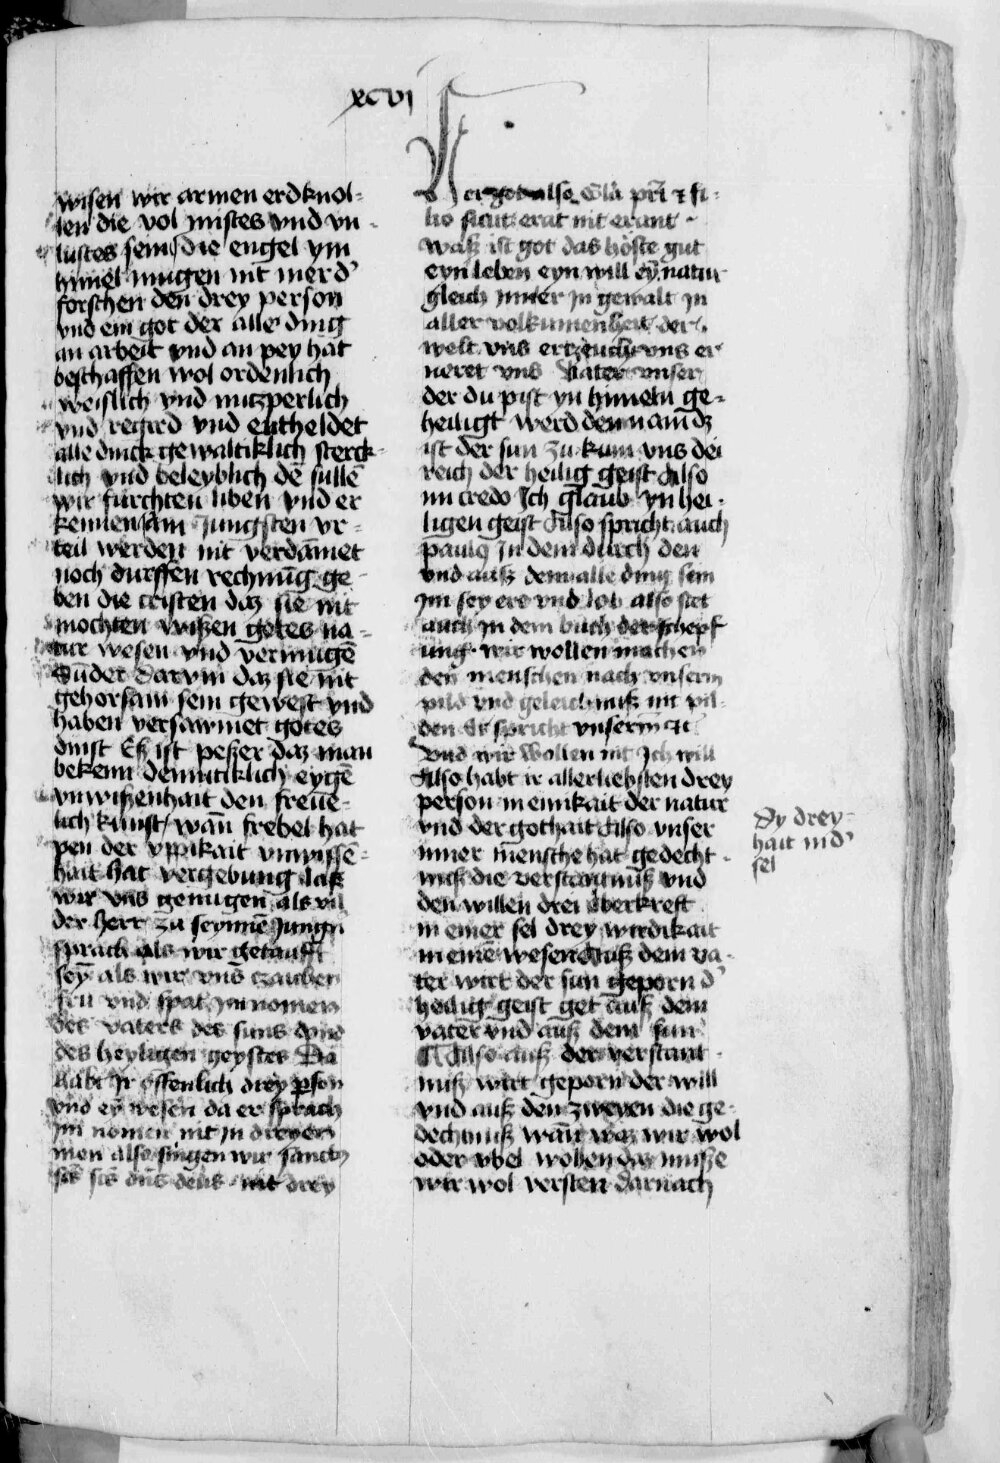 xcvj
wisen wir armen erdknol-
len die vol mistes vnd vn
lustes sein die engel ym
himel mugen nit mer d'
forschen den drey person
vnd ein got der alle ding
an arbeit vnd an pey hat
beschaffen wol ordenlich
weislich vnd nutzperlich
vnd regird vnd entheldet
alle dinck gewaltiklich sterck
lich vnd beleyblich dē sullē
wir furchten liben vnd er
kennen am Jungsten vr-
teil werden nit verdāmet
noch durffen rechnūg ge-
ben die cristen daz sie nit
mochten wißen gotes na-
tur wesen vnd vermugē
Sūder darvm daz sie nit
gehorsam sein gewest vnd
haben versawmet gotes
dinst Eß ist peßer daz man
bekenn demutiklich eygē
vnwißenhait den freue-
lich kunst wān frebel hat
pen der vppikait vnwissē-
hait hat vergebung laß
wir vns genugen als vil
der herr zu seynnē Jungn
sprach als wir getaufft
sey als wir vns
fru vnd spat ym nomen
des vaters des suns vnd
des heyligen geystes Da
habt ir offenlich drey p̲son
vnd ey wesen da er sprach
im nomen nit in dreyen
men also singen wir sanctus
sc̄s sc̄s dn̄s deus nit drey
er got also Glā pr̄i & fi-
lio sicut erat nit erant
Waß ist got das höste gut
eyn leben eyn will eȳ natur
gleich ymer in gewalt in
aller volkumenheit der
welt vns vns er
neret vns Vater vnser
der du pist yn hymeln ge-
heiligt werd dein nam dz
ist der sun zu kum vns dei
reich der heilig geist Also
im credo Ich glaub yn hei-
ligen geist Also spricht auch
paulꝯ in dem durch den
vnd auß dem alle ding sein
im sey ere vnd lob also stet
auch in dem buch der schepf
ung wir wollen machen
den menschen nach vnserm
pild vnd geleichnuß nit pil-
den Er spricht vnserm &c
vnd wir wollen nit ich will
Also habt ir allerliebsten drey
person in einikait der natur
vnd der gothait Also vnser
inner mensche hat gedecht
nuß die verstantnuß vnd
den willen drei oberkreft
in einer sel drey wirdikait
in einē wesen Auß dem va-
ter wirt der sun geporn d'
heilig geist get auß dem
vater vnd auß dem sun
Also auß der verstant
nuß wirt geporn der will
vnd auß den zweyen die ge-
dechtnuß wān waz wir wol
oder vbel wollen daz muße
wir wol versten darnach
Dy drey-
hait in d'
sel